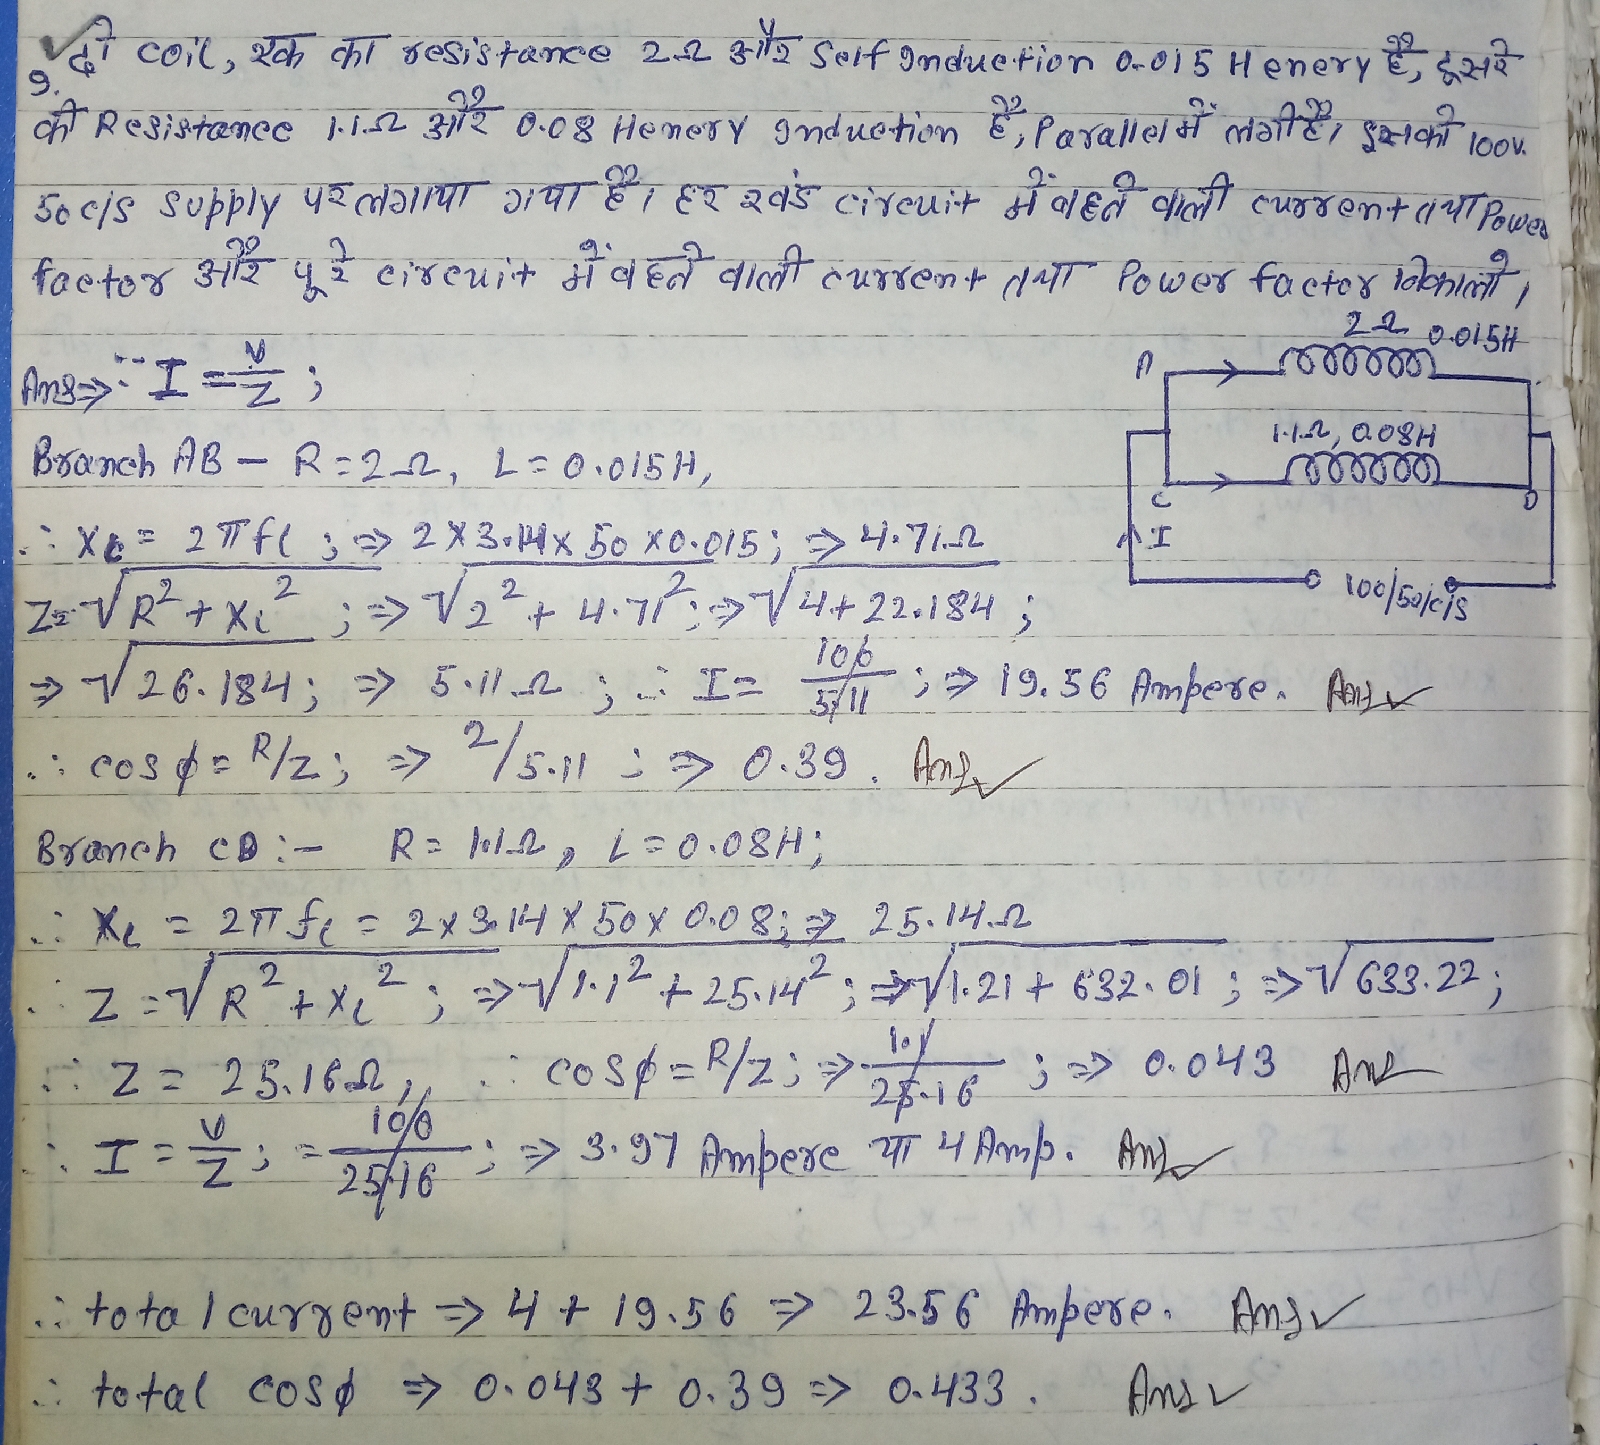 9. दो coil, एक का resistance 2Ω और Self Induction 0.015 Henery है, दूसरे
की Resistance 1.1Ω और 0.08 Henery Induction है, Parallel में लगी है। इसको 100v.
50 c/s supply पर लगाया गया है। हर खंड circuit में बहने वाली current तथा Power
factor और पूरे circuit में बहने वाली current तथा Power factor निकालो।
Ans⇒ ∵ I = V/Z ;
2Ω 0.015H
A
1.1Ω, 0.08H
C D
I
100/50/c/s
Branch AB – R = 2Ω, L = 0.015H,
∴ XL = 2πfl ; ⇒ 2×3.14×50×0.015; ⇒ 4.71Ω
Z = √R² + XL² ; ⇒ √2² + 4.71² ; ⇒ √4 + 22.184 ;
⇒ √26.184 ; ⇒ 5.11Ω ; ∴ I = 100/5.11 ; ⇒ 19.56 Ampere. Ans
∴ cos φ = R/Z ; ⇒ 2/5.11 ; ⇒ 0.39. Ans
Branch CD :– R = 1.1Ω, L = 0.08H;
∴ XL = 2πfL = 2×3.14×50×0.08; ⇒ 25.14Ω
∴ Z = √R² + XL² ; ⇒ √1.1² + 25.14² ; ⇒ √1.21 + 632.01 ; ⇒ √633.22 ;
∴ Z = 25.16Ω, ∴ cos φ = R/Z ; ⇒ 1.1/25.16 ; ⇒ 0.043 Ans
∴ I = V/Z ; = 100/25.16 ; ⇒ 3.97 Ampere या 4 Amp. Ans
∴ total current ⇒ 4 + 19.56 ⇒ 23.56 Ampere. Ans
∴ total cosφ ⇒ 0.043 + 0.39 ⇒ 0.433. Ans